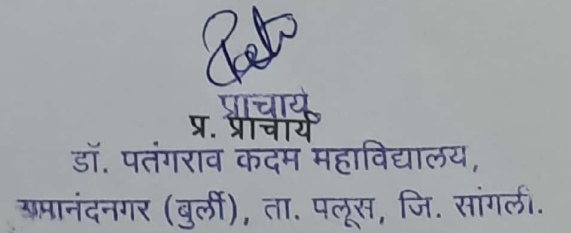 प्राचार्य
प्र. प्राचार्य
डॉ. पतंगराव कदम महाविद्यालय,
रामानंदनगर (बुर्ली), ता. पलूस, जि. सांगली.